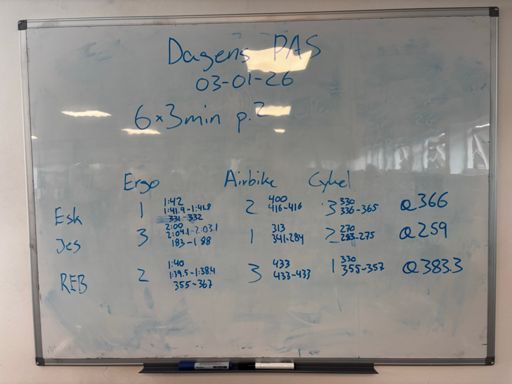 Dagens PAS
03-01-26
6×3min p.2
Ergo Airbike Cykel
Esk 1 1:42 2 400 3 330 Q366
1:41.9-1:41.8 416-416 336-365
331-332
Jes 3 2:00 1 313 2 270 Q259
2:04.1-2:03.1 341-284 283-275
183-188
REB 2 1:40 3 433 1 330 Q383.3
1:39.5-1:38.4 433-433 355-357
355-367